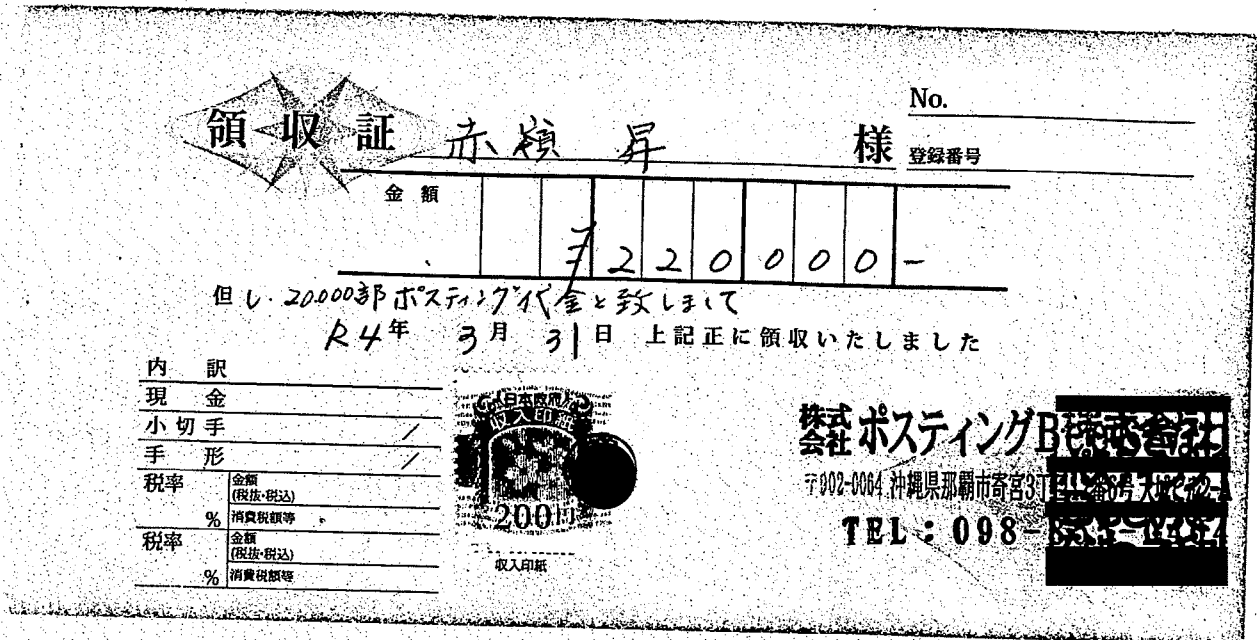 No.
領収証 赤嶺 昇 様
登録番号
金額
¥220000-
但し.20.000部ポスティング代金と致しまして
R4年 3月 31日 上記正に領収いたしました
内訳
現金
小切手 /
手形 /
税率 金額(税抜・税込)
% 消費税額等
税率 金額(税抜・税込)
% 消費税額等
日本政府
収入印紙
200円
収入印紙
株式会社 ポスティングB
〒902-0064 沖縄県那覇市寄宮3丁
TEL:098-